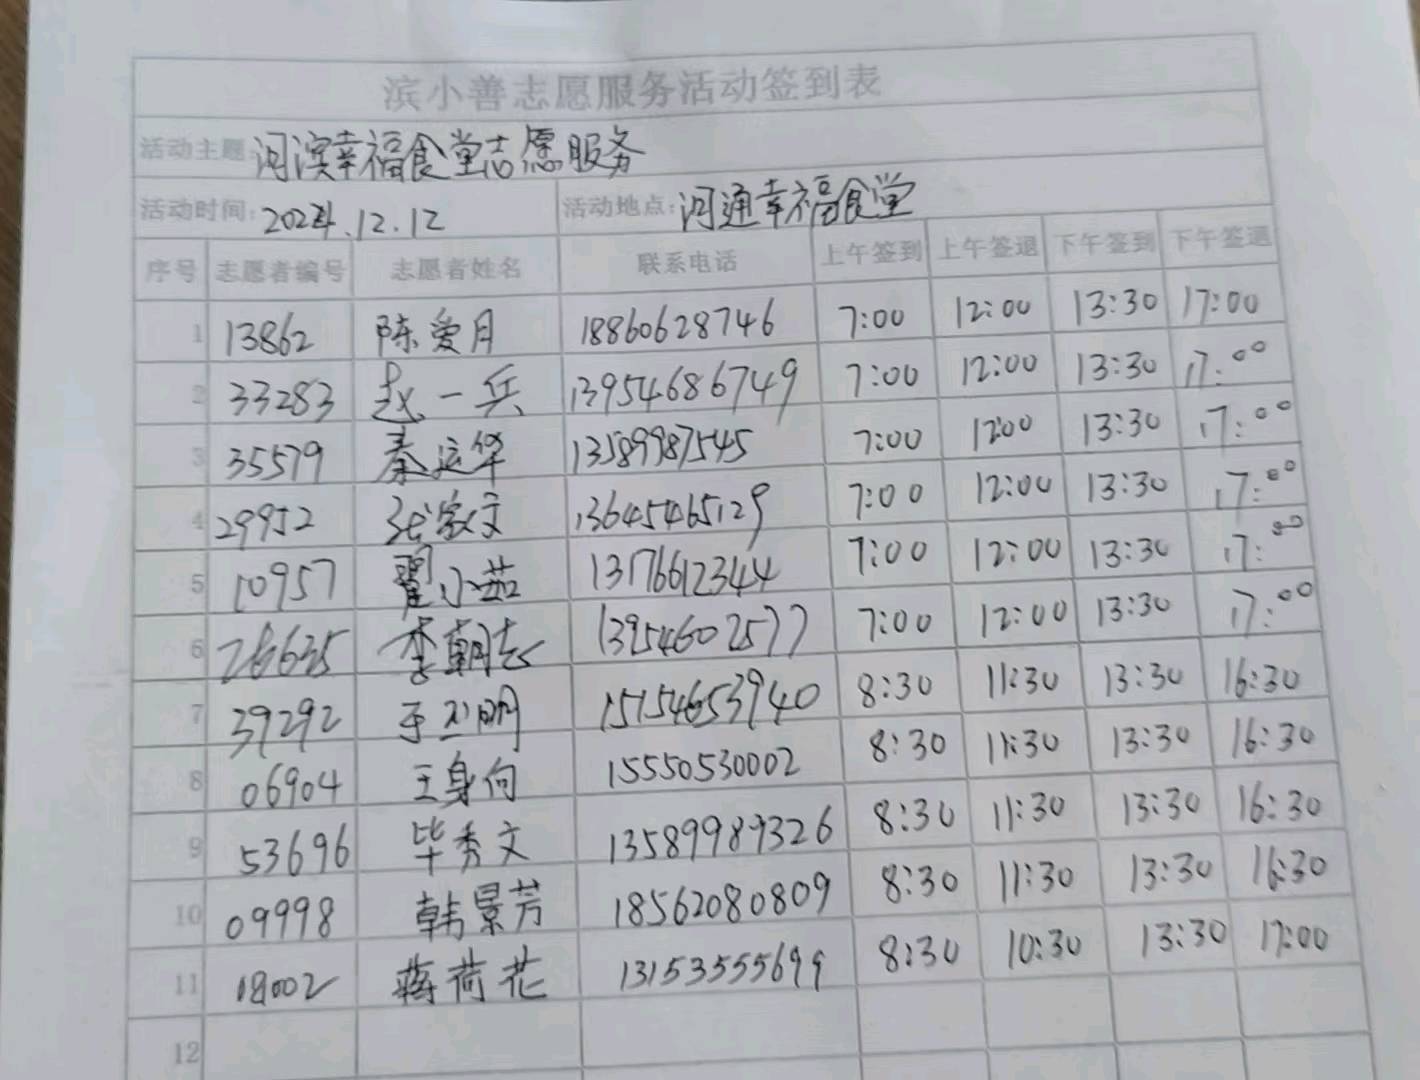 滨小善志愿服务活动签到表
活动主题: 河滨幸福食堂志愿服务
活动时间: 2024.12.12 活动地点: 河通幸福食堂
序号 志愿者编号 志愿者姓名 联系电话 上午签到 上午签退 下午签到 下午签退
1 13862 陈爱月 18860628746 7:00 12:00 13:30 17:00
2 33283 赵一兵 13954686749 7:00 12:00 13:30 17:00
3 35579 秦运华 13589987545 7:00 12:00 13:30 17:00
4 29952 张家文 13645465129 7:00 12:00 13:30 17:00
5 10957 翟小茹 13176612344 7:00 12:00 13:30 17:00
6 26635 李朝志 13954602577 7:00 12:00 13:30 17:00
7 39292 15154653940 8:30 11:30 13:30 16:30
8 06904 王身向 15550530002 8:30 11:30 13:30 16:30
9 53696 毕秀文 13589989326 8:30 11:30 13:30 16:30
10 09998 韩景芳 18562080809 8:30 11:30 13:30 16:30
11 18002 蒋荷花 13153555699 8:30 10:30 13:30 17:00
12